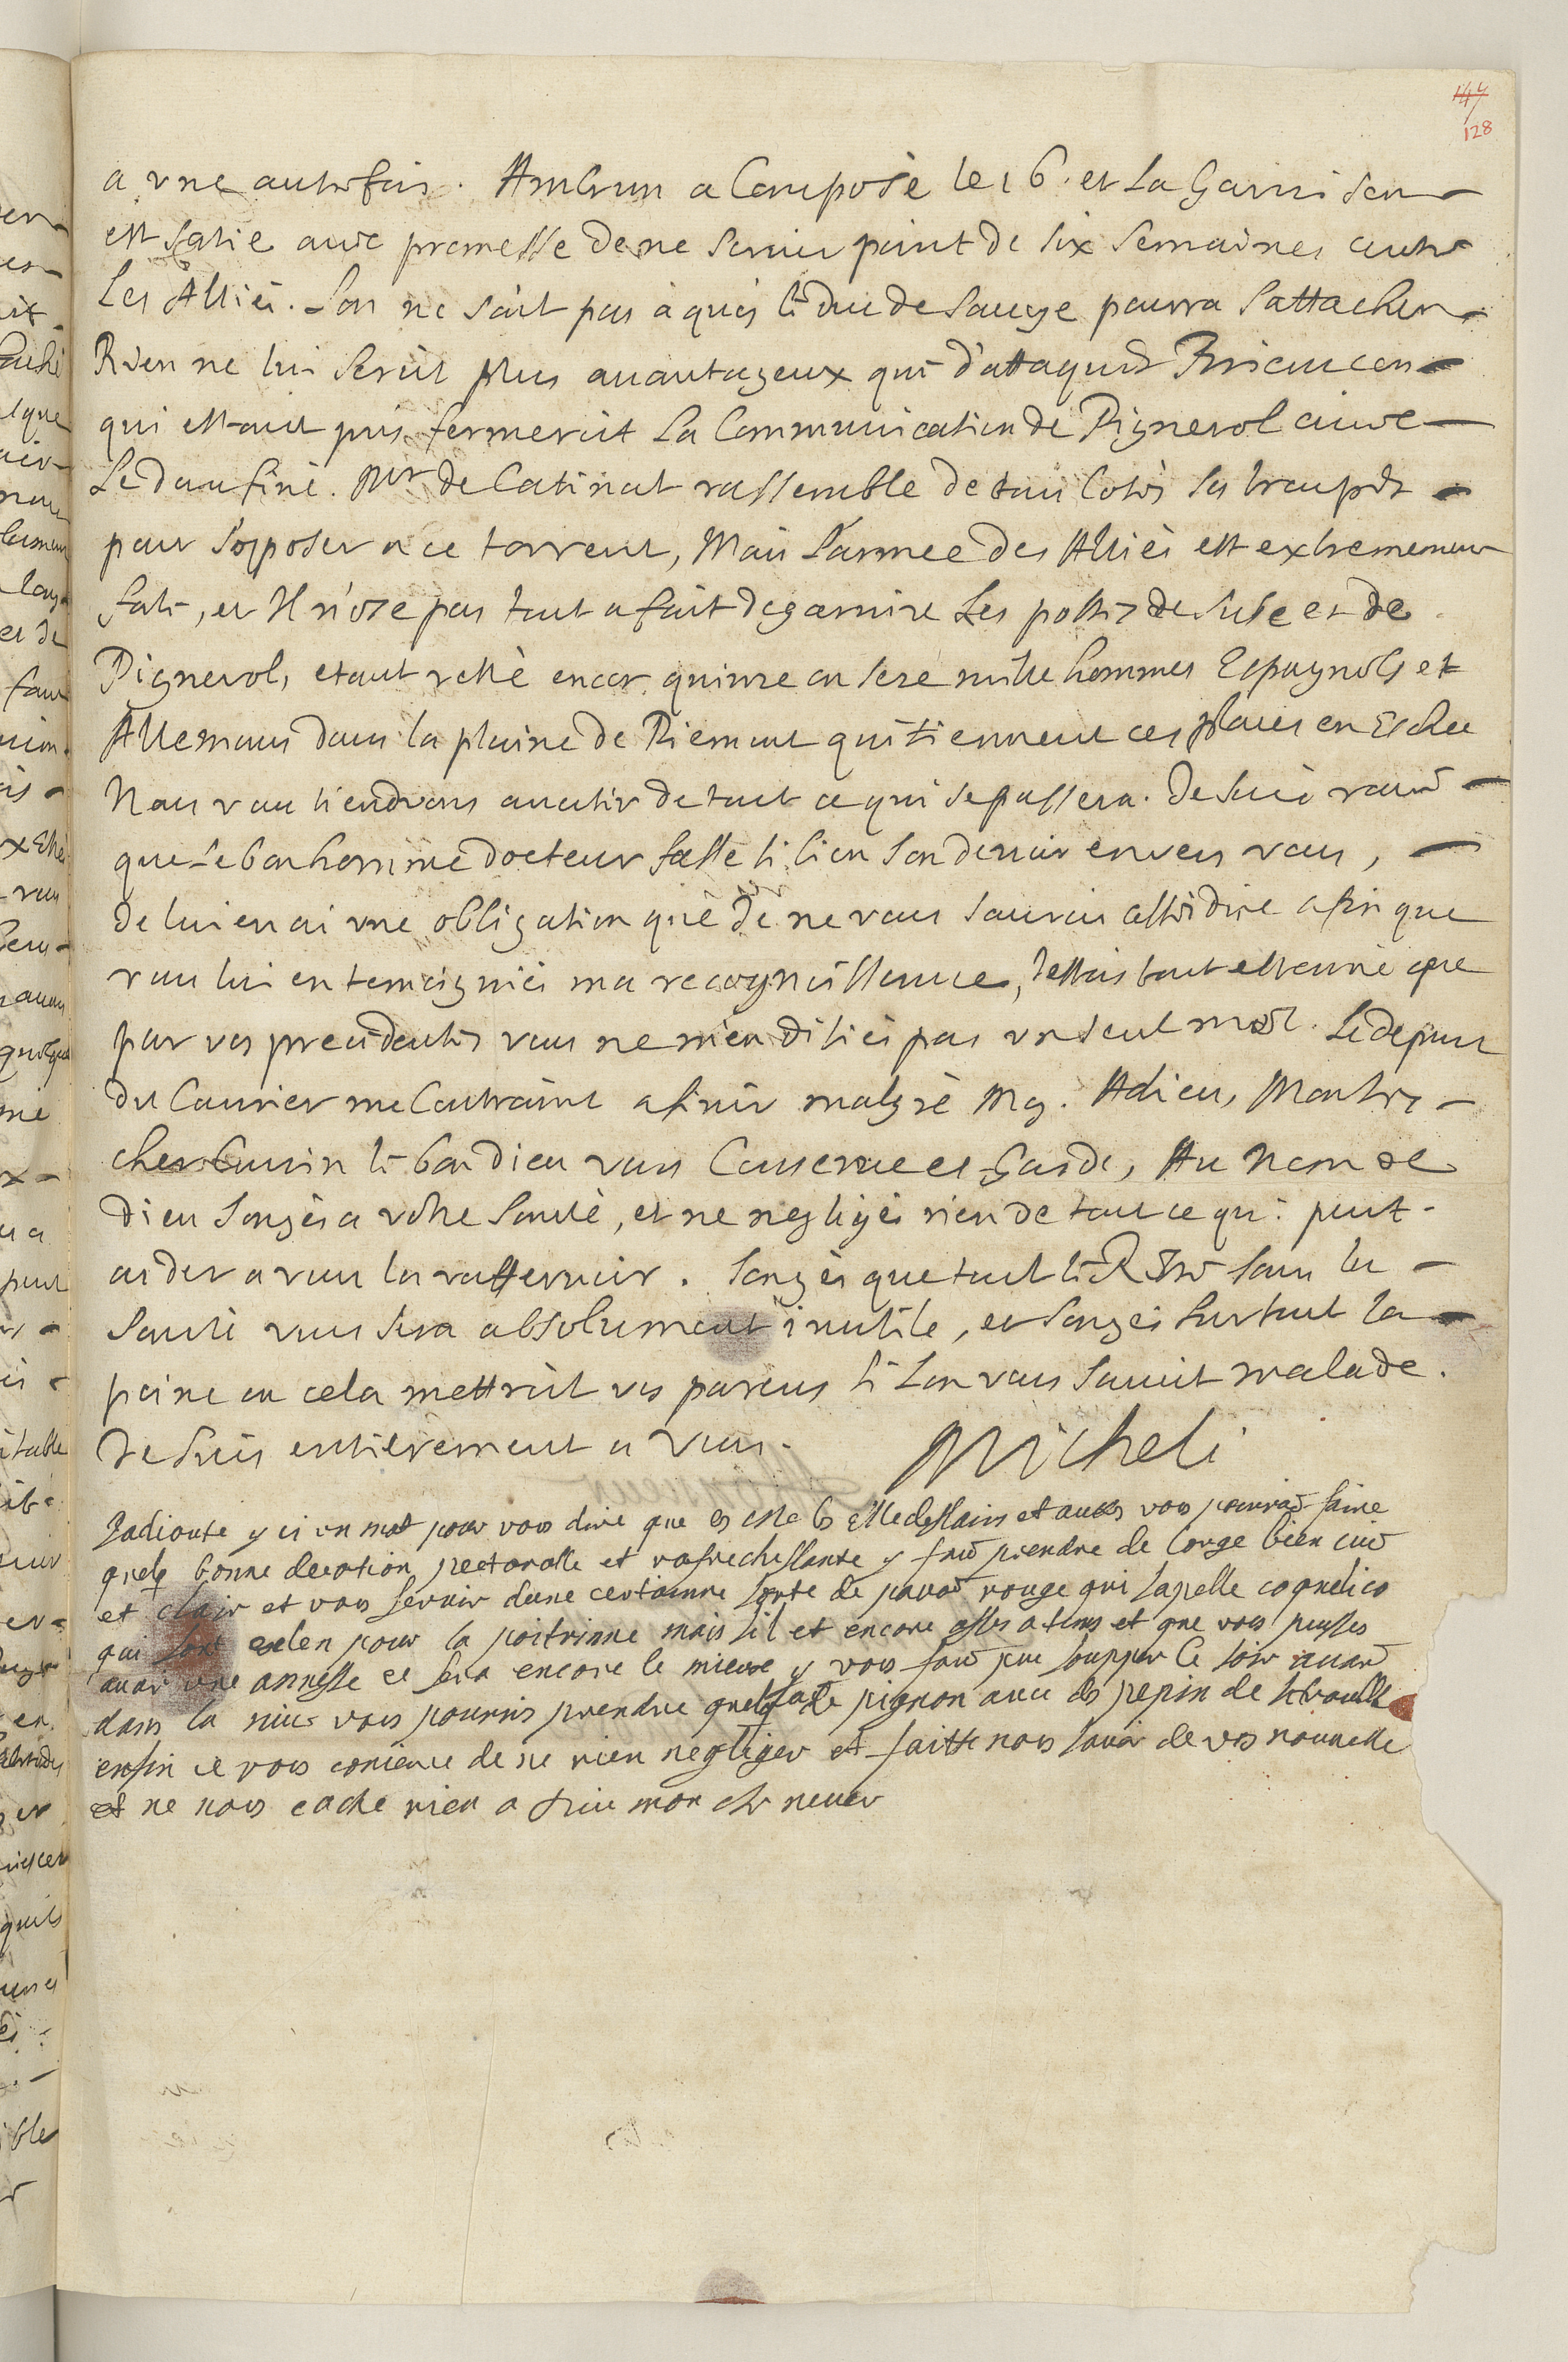 144
128
a vne autrefois. Ambrun a Composé le 16. et La Garnison
est sortie avec promesse de ne servir point de six semaines contre
Les Alliés. Lon ne sait pas à quoi le duc de Savoye pourra sattacher
Rien ne lui seroit plus avantageux que d'attaquer Briancon
qui estant pris fermeroit La Communication de Pignerol avec
Le daufiné. Mr de Catinat rassemble de tous Cotés ses troupes
pour s'opposer a ce torrent, Mais L'armee des Alliés est extremement
forte, et Il n'ose pas tout a fait degarnire Les postes de Suse et de
Pignerol, etant resté encor quinze ou seze mille hommes Espagnols et
Allemans dans la plaine de Piemont qui tiennent ces places en Echec
Nous vous tiendrons avertis de tout ce qui se passera. Je suis ravi
que Le bon homme docteur fasse si bien son devoir envers vous,
Je lui en ai vne obligation que Je ne vous saurois assés dire afin que
vous lui en temoigniés ma recognoissance, J'estois tout estonné que
par vos precedentes vous ne m'en disiés pas vn seul mot. Le depart
du Courier me Contraint a finir malgré Moy. Adieu, Mon tres
cher Cousin le bon dieu vous Conserve et Garde, Au Nom de
dieu songés a votre santé, et ne negligés rien de tout ce qui peut
aider a vous la raffermir. Songés que tout le Reste sans la
santé vous sera absolument inutile, et songés surtout la
peine ou cela mettroit vos parens si Lon vous savoit malade.
Je suis entierement a vous.
Micheli
Jadioute y ci un mot pour vous dire que
quelq bonne decotion pectoralle et rafrechissante y faut prendre de lorge bien cuit
et clair et vous servir dune certainne sorte de pavot rouge qui sapelle coquelico
qui sont exelen pour la poitrinne mais sil et encore asses a tems et que vous puisses
avoir une annesse ce sera encore le mieux y vous faut peu soupper le soir avant
dans la nuit vous pourries prendre quelq de pignon avec des pepin de sitroulle
enfin ie vous coniure de ne rien negliger et faitte nous savoir de vos nouvelle
et ne nous cache rien a Dieu mon cher neveu